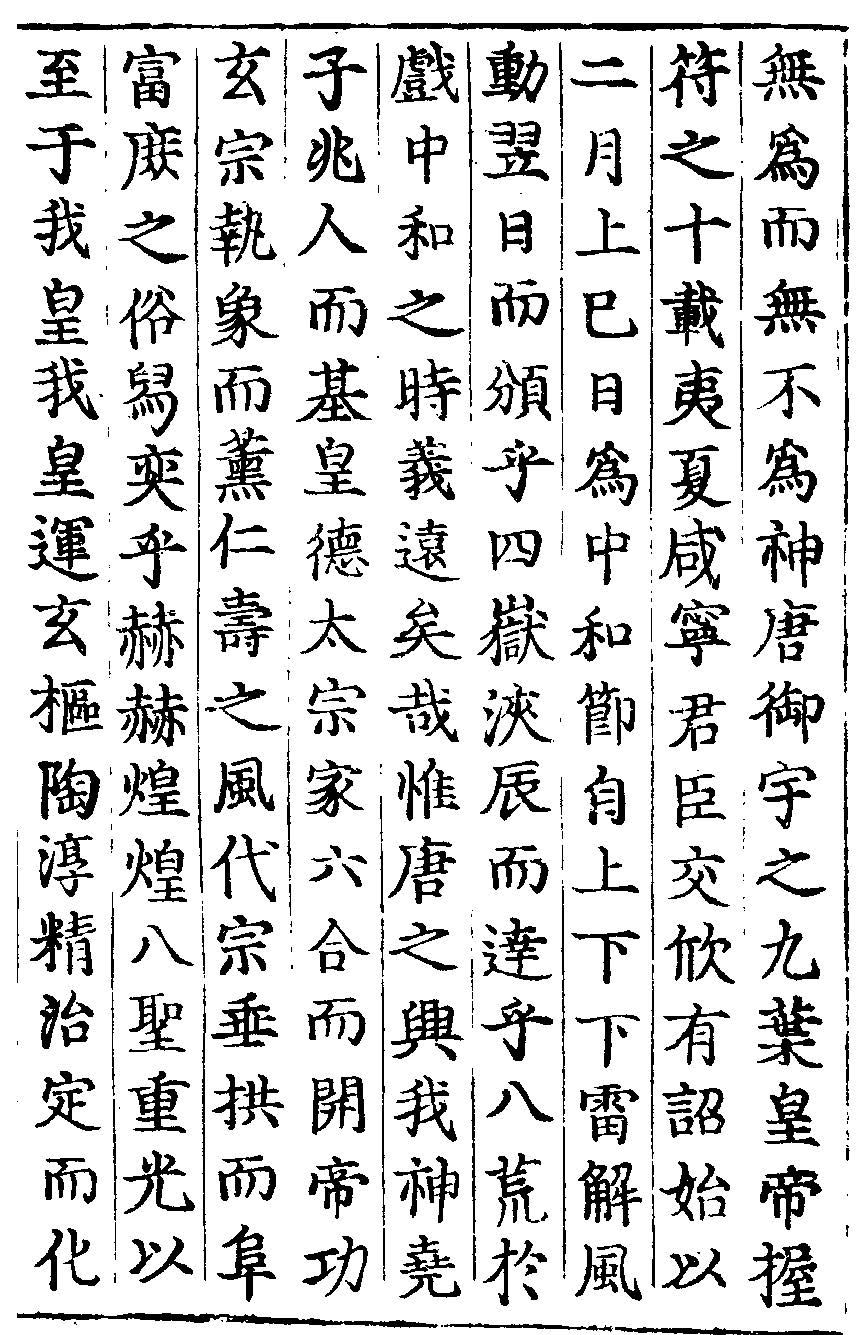 無爲而無不爲神唐御宇之九葉皇帝握
符之十載夷夏咸寧君臣交欣有詔始以
二月上巳日爲中和節自上下下雷解風
動翌日而頒乎四嶽浹辰而達乎八荒於
戲中和之時義遠矣哉惟唐之興我神堯
子兆人而基皇德太宗家六合而開帝功
玄宗執象而薰仁壽之風代宗垂拱而阜
富庶之俗舄奕乎赫赫煌煌八聖重光以
至于我皇我皇運玄樞陶淳精治定而化